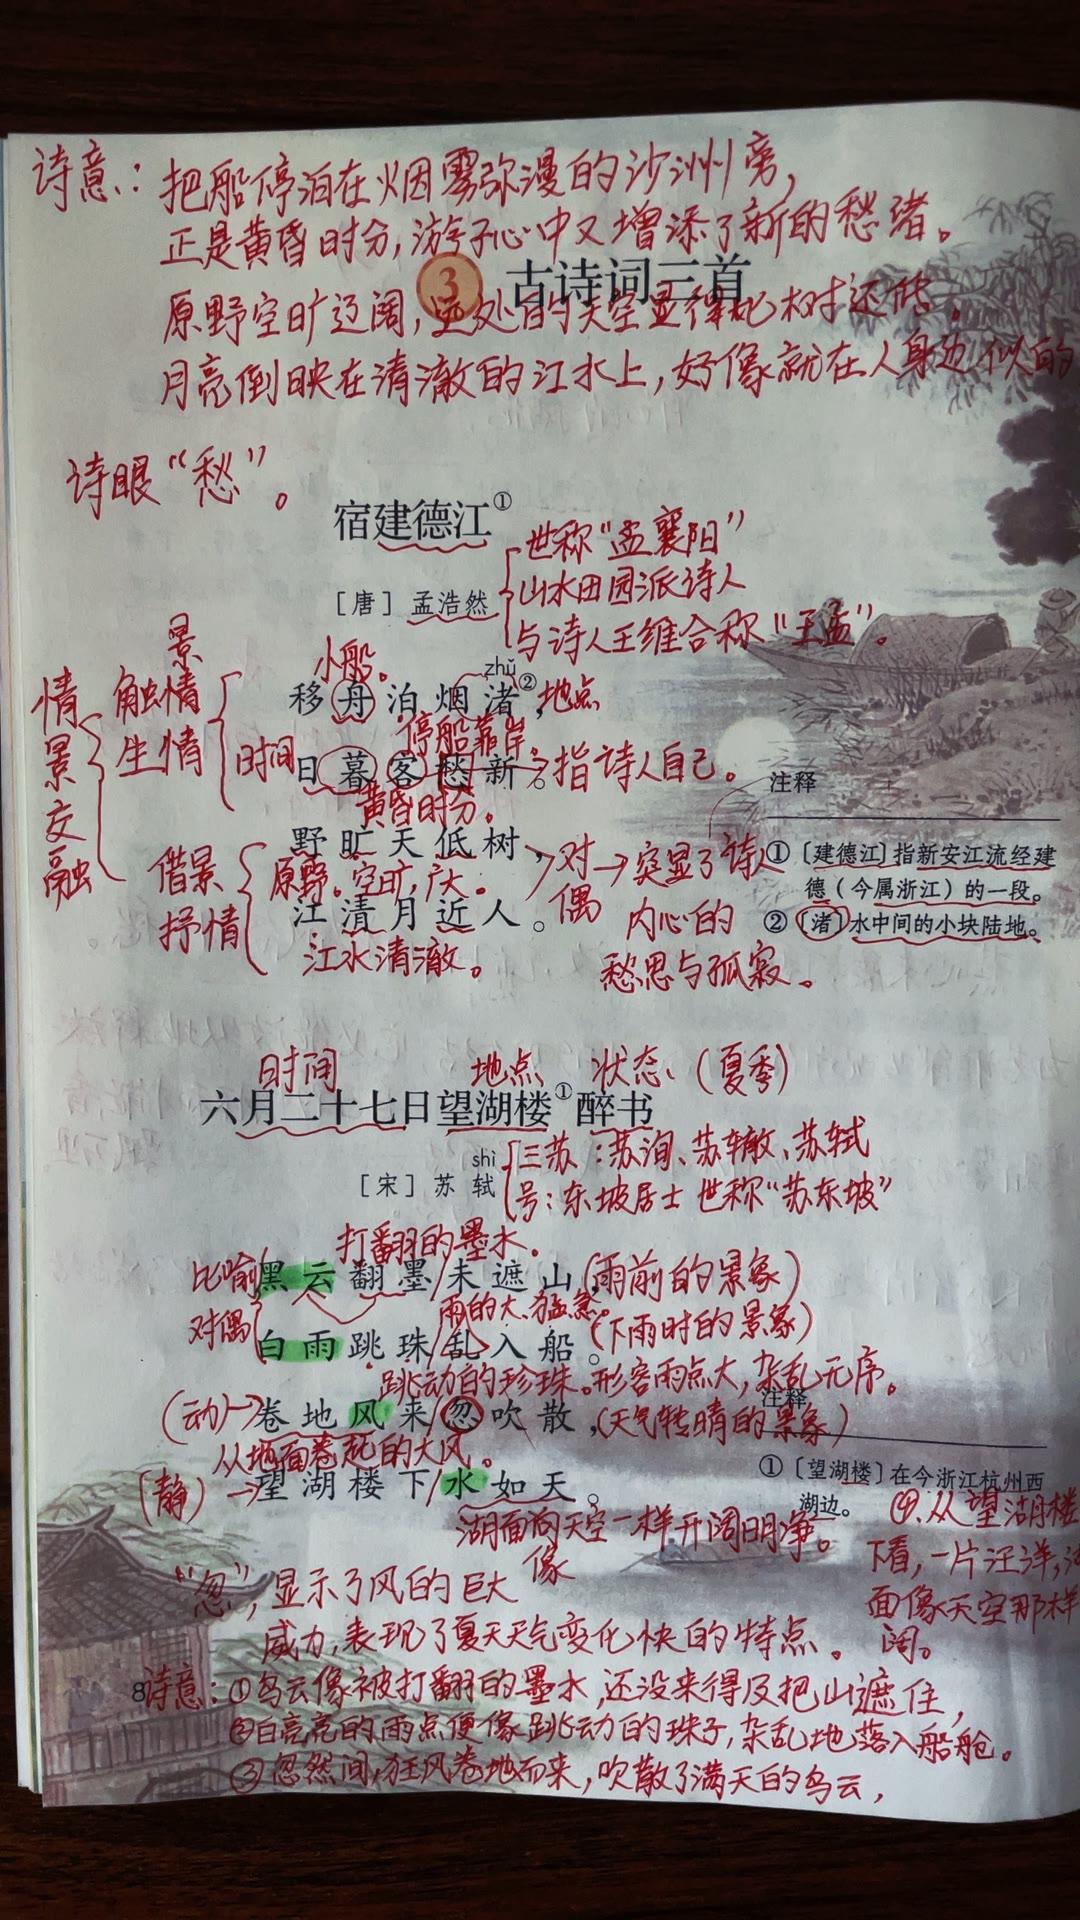 诗意:把船停泊在烟雾弥漫的沙洲旁,
正是黄昏时分,游子心中又增添了新的愁绪。
3 古诗词三首
原野空旷迈阔,远处的天空显得比树还低。
月亮倒映在清澈的江水上,好像就在人身边似的
诗眼“愁”。
宿建德江①
世称“孟襄阳”
[唐] 孟浩然
山水田园派诗人
与诗人王维合称“王孟”。
情景交融
触景生情
景
情
小船。
zhǔ
移舟泊烟渚②,
地点
停船靠岸。
时间
日暮客愁新。
指诗人自己。
黄昏时分。
借景抒情
野旷天低树,
原野。空旷,广大。
江清月近人。
江水清澈。
对偶
突显了诗人
内心的
愁思与孤寂。
注释
①〔建德江〕指新安江流经建
德(今属浙江)的一段。
②〔渚〕水中间的小块陆地。
时间 地点 状态(夏季)
六月二十七日望湖楼①醉书
shì
[宋] 苏轼
三苏:苏洵、苏辙、苏轼
号:东坡居士 世称“苏东坡”
打翻的墨水。
比喻
黑云翻墨/未遮山,
(雨前的景象)
对偶
雨的大、猛、急。
白雨跳珠/乱入船。
(下雨时的景象)
跳动的珍珠。形容雨点大,杂乱无序。
(动)→卷地风来/忽吹散,
(天气转晴的景象)
从地面卷起的大风。
(静)→望湖楼下/水如天。
湖面向天空一样开阔明净。
像
注释
①〔望湖楼〕在今浙江杭州西
湖边。
④从望湖楼
下看,一片汪洋,湖
面像天空那样
阔。
“忽”,显示了风的巨大
威力,表现了夏天天气变化快的特点。
8
诗意:①乌云像被打翻的墨水,还没来得及把山遮住,
②白亮亮的雨点便像跳动的珠子,杂乱地落入船舱。
③忽然间,狂风卷地而来,吹散了满天的乌云,